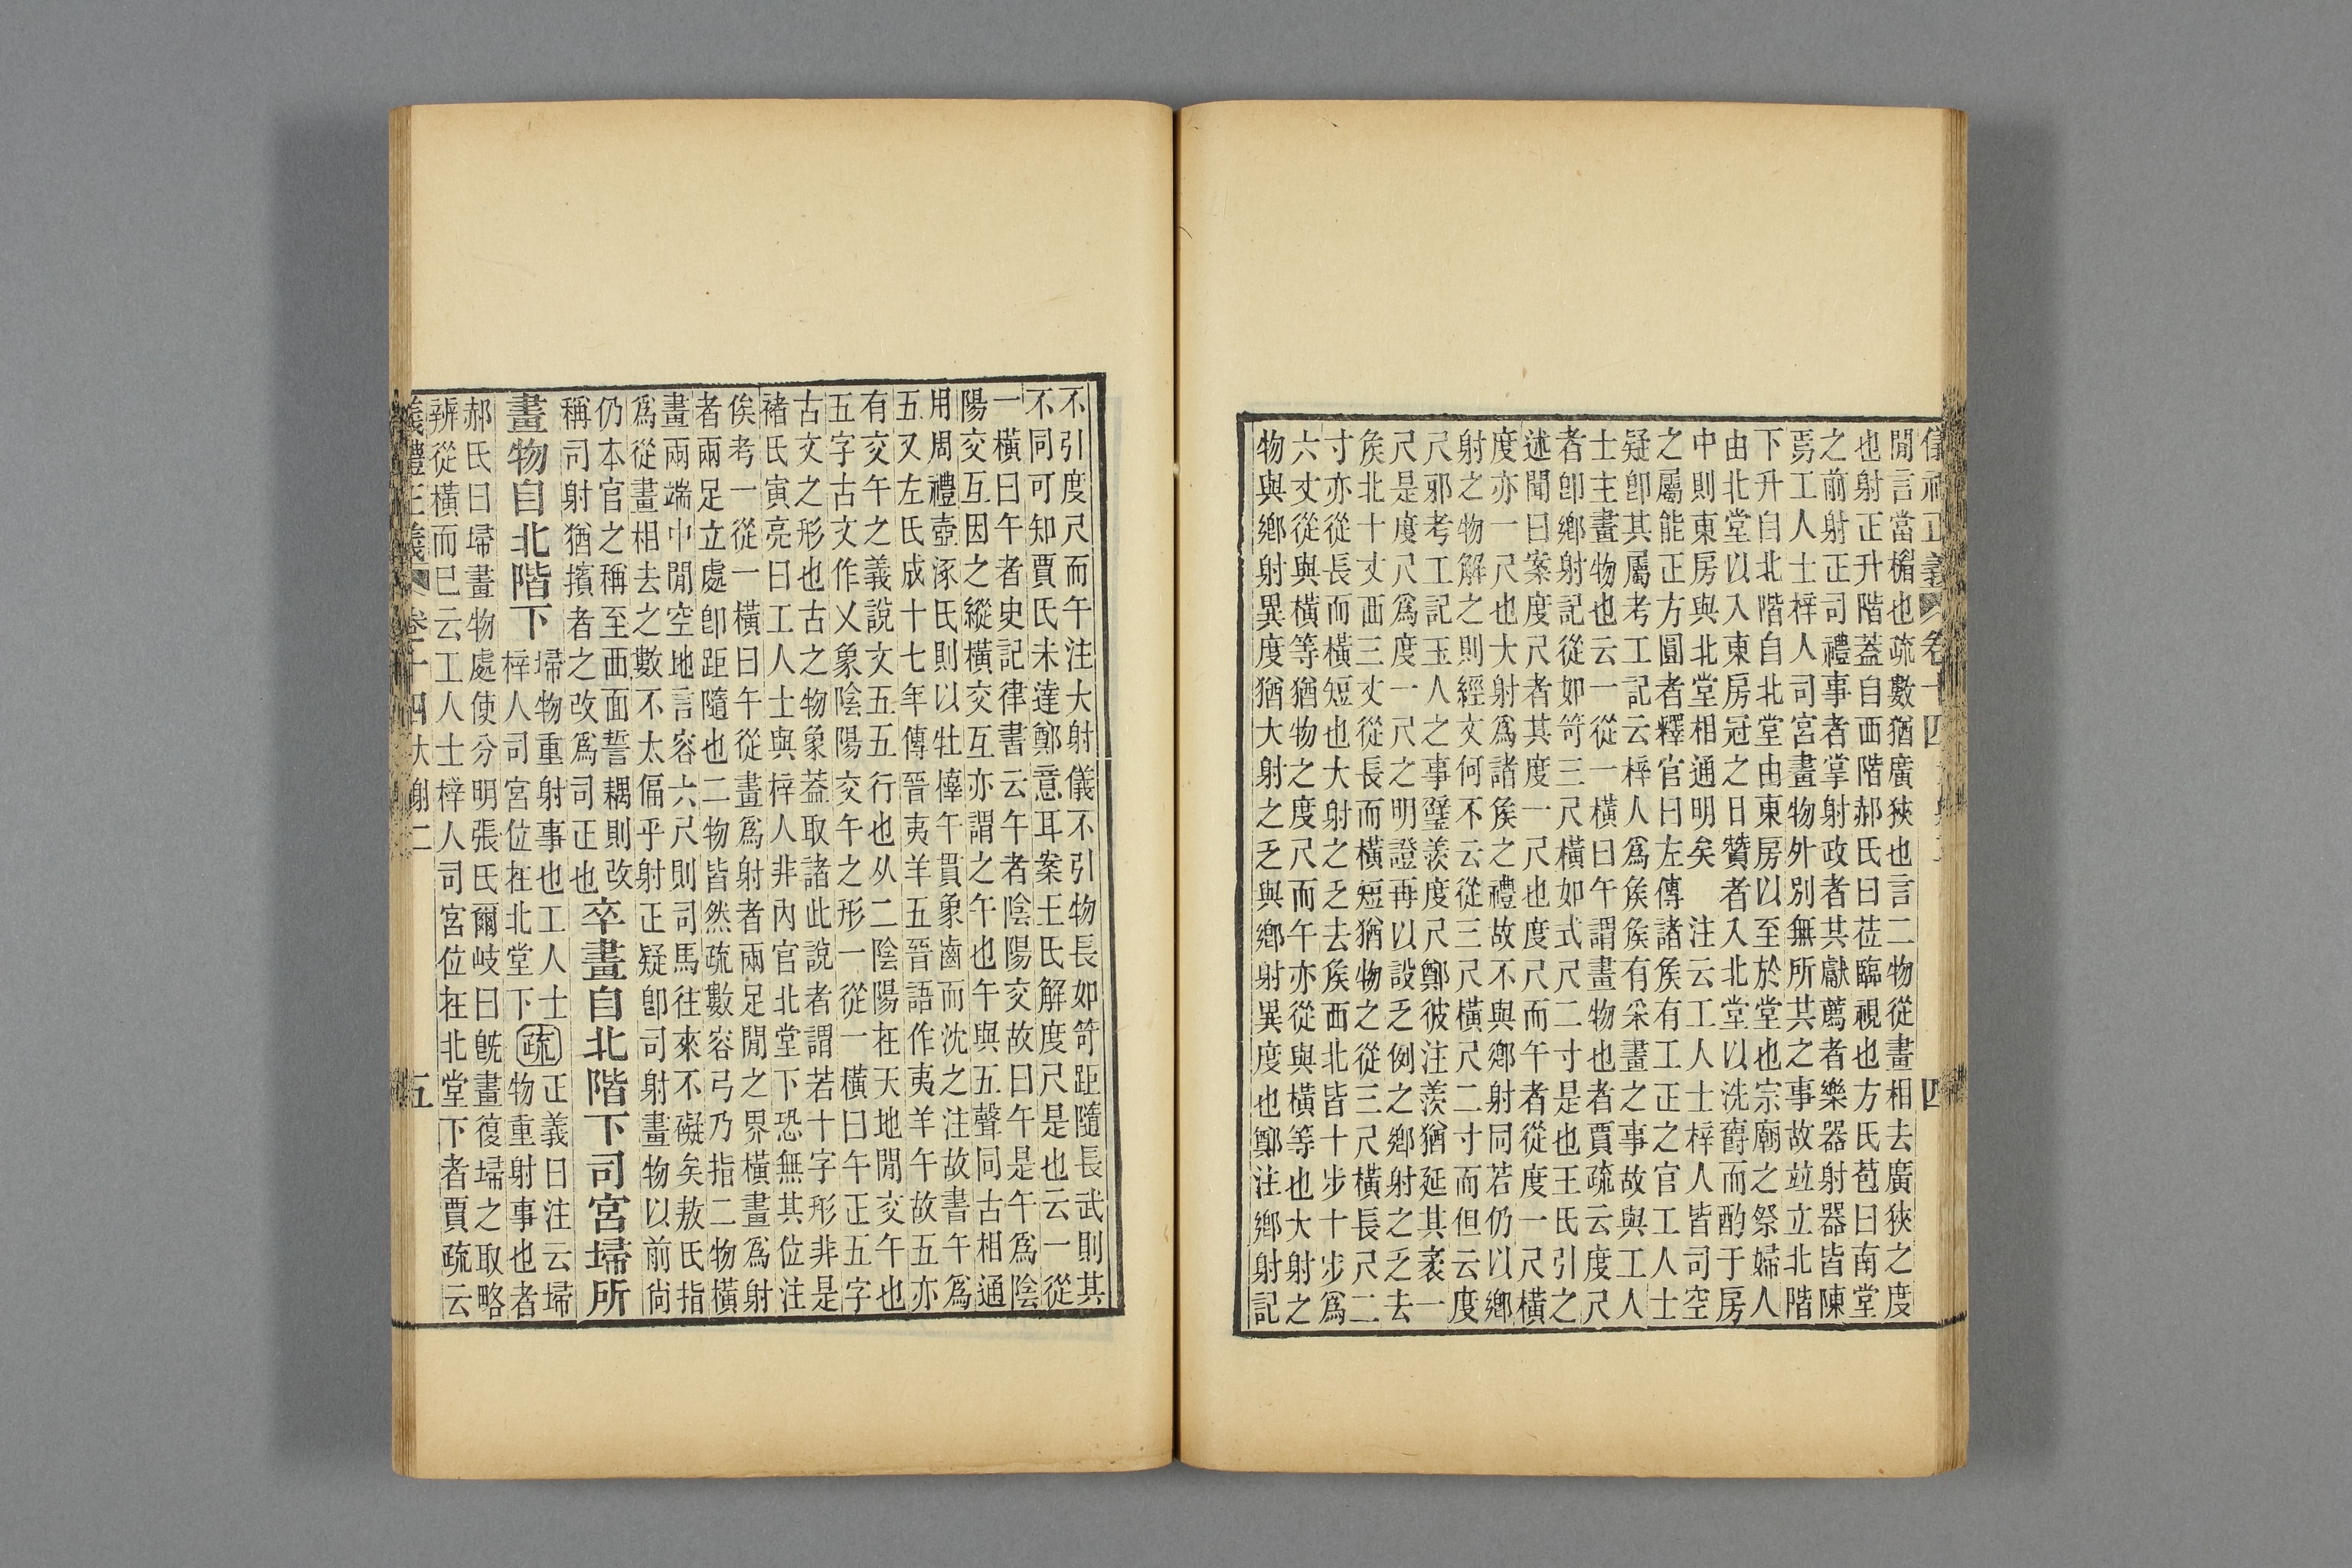 儀禮正義 卷十四 四
閒言當楅也疏數猶廣狹也言二物從畫相去廣狹之度
也射正升階蓋自西階郝氏曰莅臨視也方氏苞曰南堂
之前射正司禮事者掌射政者其獻薦者樂器射器皆陳
焉工人士梓人司宮畫物外別無所共之事故竝立北階
下升自北階自北堂由東房以至於堂也宗廟之祭婦人
由北堂以入東房冠之日贊者入北堂以洗爵而酌于房
中則東房與北堂相通明矣 注云工人士梓人皆司空
之屬能正方圓者釋官曰左傳諸矦有工正之官工人士
疑卽其屬考工記云梓人爲矦矦有采畫之事故與工人
士主畫物也云一從一橫曰午謂畫物也者賈疏云度尺
者卽鄉射記從如笴三尺橫如式尺二寸是也王氏引之
述聞曰案度尺者其度一尺也度尺而午者從度一尺橫
度亦一尺也大射爲諸矦之禮故不與鄉射同若仍以鄉
射之物解之則經文何不云從三尺橫尺二寸而但云度
尺邪考工記玉人之事璧羨度尺鄭彼注羨猶延其袤一
尺是度尺爲度一尺之明證再以設乏例之鄉射之乏去
矦北十丈西三丈從長而橫短猶物之從三尺橫長尺二
寸亦從長而橫短也大射之乏去矦西北皆十步十步爲
六丈從與橫等猶物之度尺而午亦從與橫等也大射之
物與鄉射異度猶大射之乏與鄉射異度也鄭注鄉射記
不引度尺而午注大射儀不引物長如笴距隨長武則其
不同可知賈氏未達鄭意耳案王氏解度尺是也云一從
一橫曰午者史記律書云午者陰陽交故曰午是午爲陰
陽交互因之縱橫交互亦謂之午也午與五聲同古相通
用周禮壺涿氏則以牡橭午貫象齒而沈之注故書午爲
五又左氏成十七年傳晉夷羊五晉語作夷羊午故五亦
有交午之義說文五五行也从二陰陽在天地閒交午也
五字古文作乂象陰陽交午之形一從一橫曰午正五字
古文之形也古之物象蓋取諸此說者謂若十字形非是
褚氏寅亮曰工人士與梓人非內官北堂下恐無其位注
俟考一從一橫曰午從畫爲射者兩足閒之界橫畫爲射
者兩足立處卽距隨也二物皆然疏數容弓乃指二物橫
畫兩端中閒空地言容六尺則司馬往來不礙矣敖氏指
爲從畫相去之數不太偪乎射正疑卽司射畫物以前尙
仍本官之稱至西面誓耦則改
稱司射猶擯者之改爲司正也
卒畫自北階下司宮埽所
畫物自北階下
埽物重射事也工人士
梓人司宮位在北堂下
疏
正義曰注云埽
物重射事也者
郝氏曰埽畫物處使分明張氏爾岐曰旣畫復埽之取略
辨從橫而已云工人士梓人司宮位在北堂下者賈疏云
儀禮正義 卷十四 大射二 五